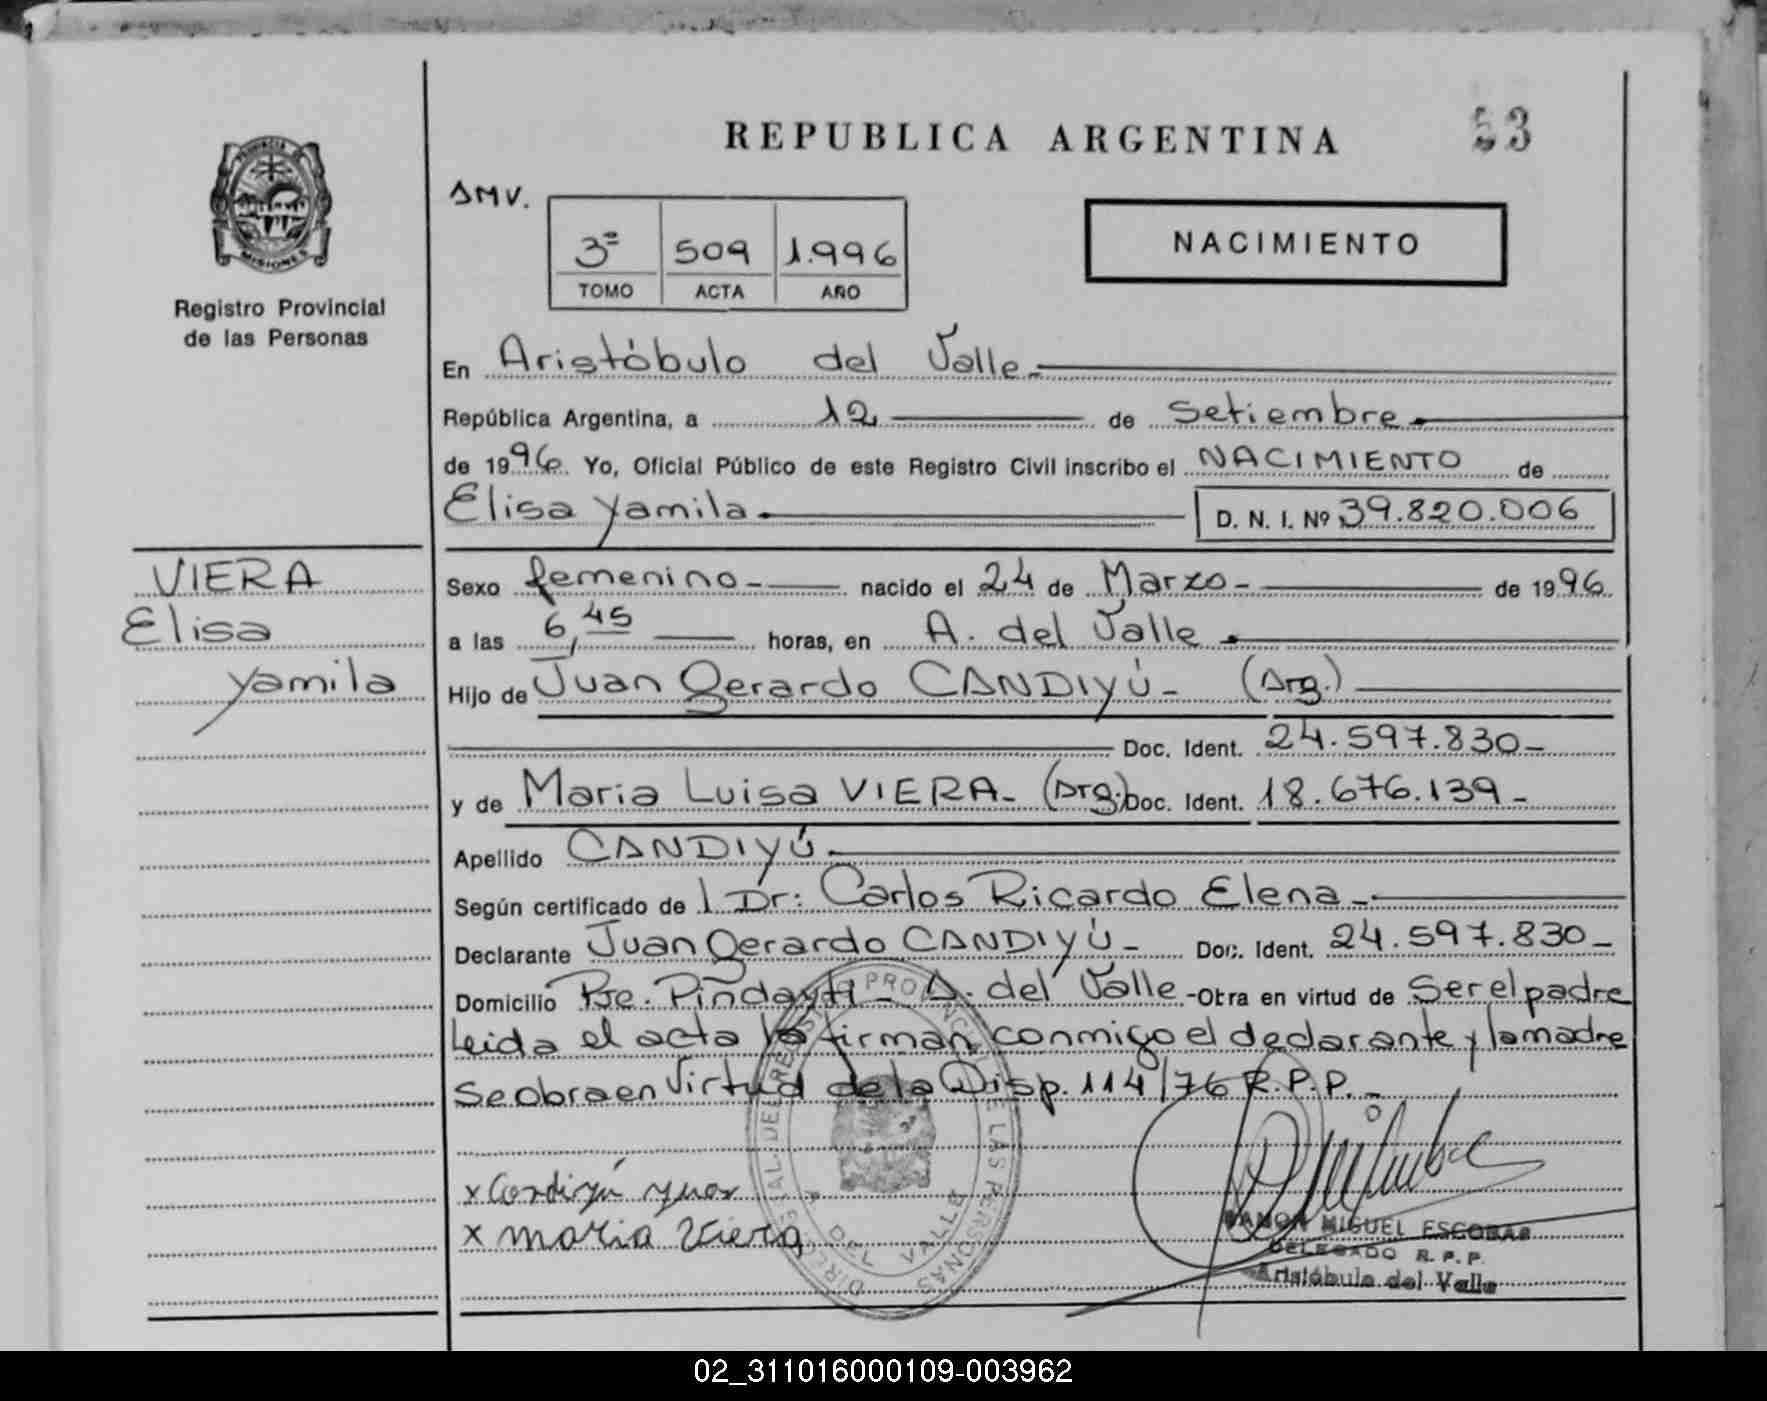 REPUBLICA ARGENTINA
53
PROVINCIA DE
MISIONES
Registro Provincial
de las Personas
AMV.
3ª 509 1.996
TOMO ACTA AÑO
NACIMIENTO
En Aristóbulo del Valle.
República Argentina, a 12 de Setiembre
de 1996. Yo, Oficial Público de este Registro Civil inscribo el NACIMIENTO de
Elisa Yamila. D. N. I. Nº 39.820.006
VIERA
Elisa
Yamila
Sexo femenino- nacido el 24 de Marzo- de 1996
a las 6,45 horas, en A. del Valle.
Hijo de Juan Gerardo CANDIYÚ- (Arg.)
Doc. Ident. 24.597.830-
y de Maria Luisa VIERA- (Arg.) Doc. Ident. 18.676.139-
Apellido CANDIYÚ-
Según certificado de l Dr: Carlos Ricardo Elena-
Declarante Juan Gerardo CANDIYÚ- Doc. Ident. 24.597.830-
Domicilio Pje. Piñdayti- A. del Valle -Obra en virtud de Ser el padre
Leida el acta la firman conmigo el declarante y la madre
Se obra en Virtud de la Disp. 114/76 R.P.P.-
x Candiyú
x maria Viera
DIRECC PROVINCIAL DEL REGIST DE LAS PERSONAS
A. DEL VALLE
RAMON MIGUEL ESCOBAR
DELEGADO R. P. P.
Aristóbulo del Valle
02_311016000109-003962